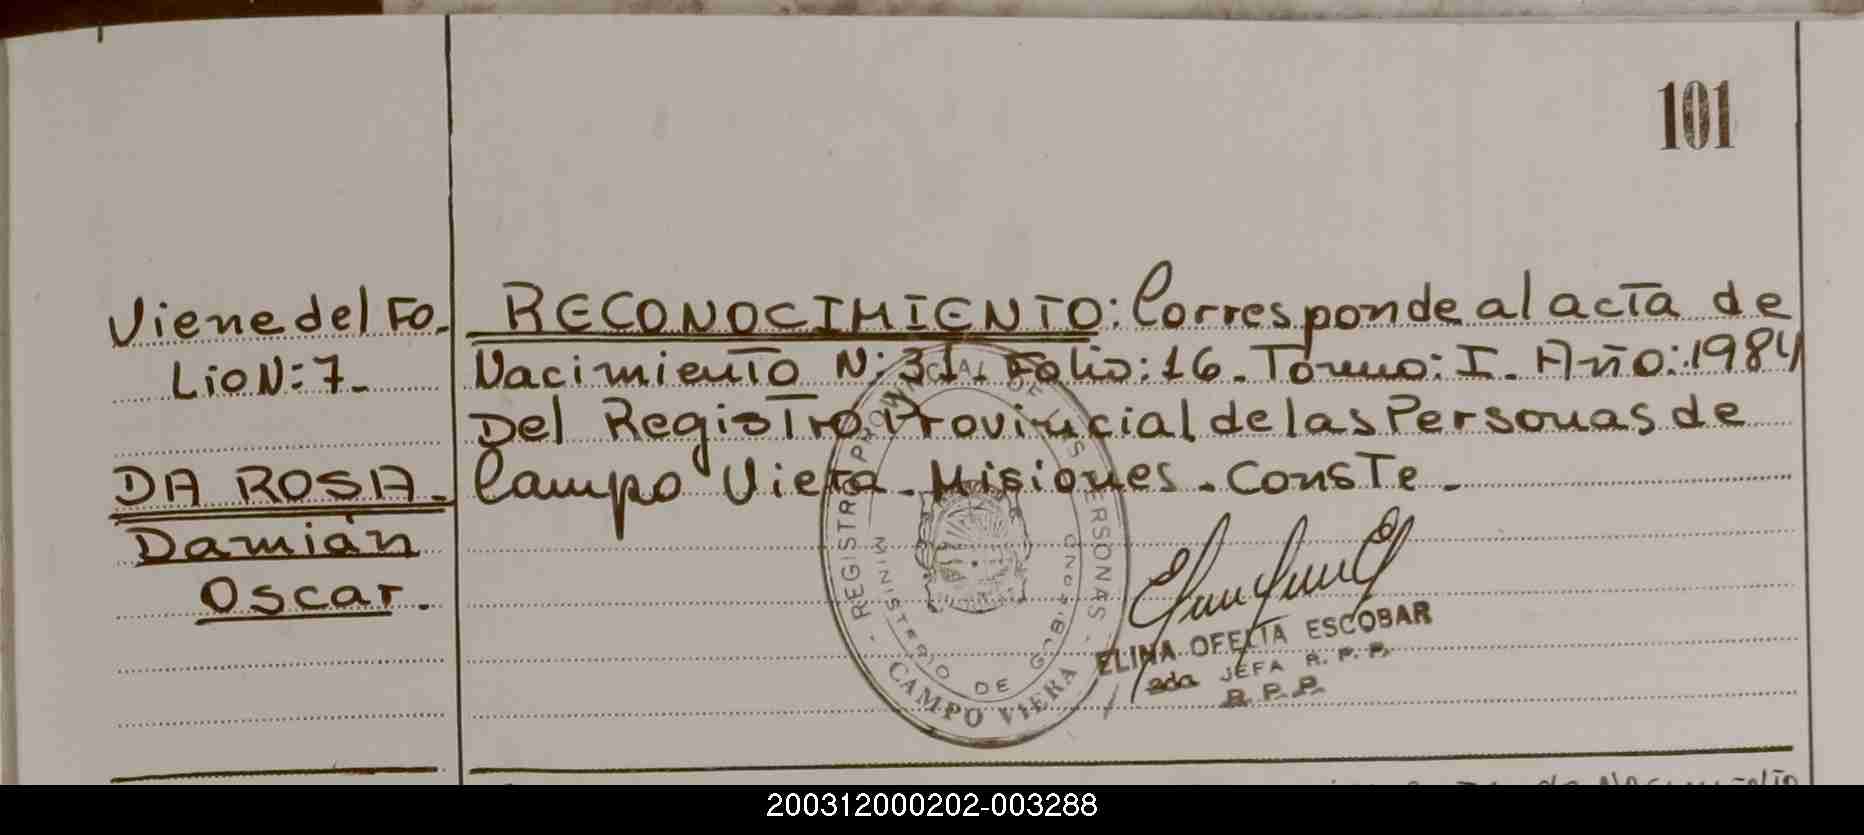 101
Viene del Fo.
Lio N: 7.
DA ROSA.
Damián
Oscar.
RECONOCIMIENTO: Corresponde al acta de
Nacimiento N: 31. Folio: 16. Tomo: I. Año: 1984
Del Registro Provincial de las Personas de
Campo Viera. Misiones. Conste.
- REGISTRO PROVINCIAL DE LAS PERSONAS -
MINISTERIO DE GOBIERNO
CAMPO VIERA
ELINA OFELIA ESCOBAR
2da JEFA R. P. P.
R. P. P.
200312000202-003288